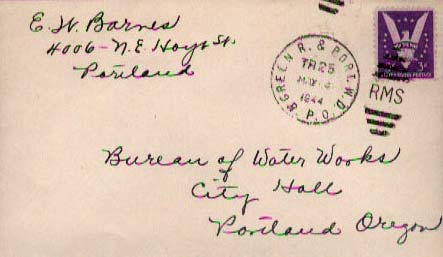 E. W. Barnes
4006 - N.E. Hoyt St.
Portland
GREEN R. & PORT. W.D.
TR25
MAY 4
1944
R.P.O.
RMS
3¢
Bureau of Water Works
City Hall
Portland Oregon